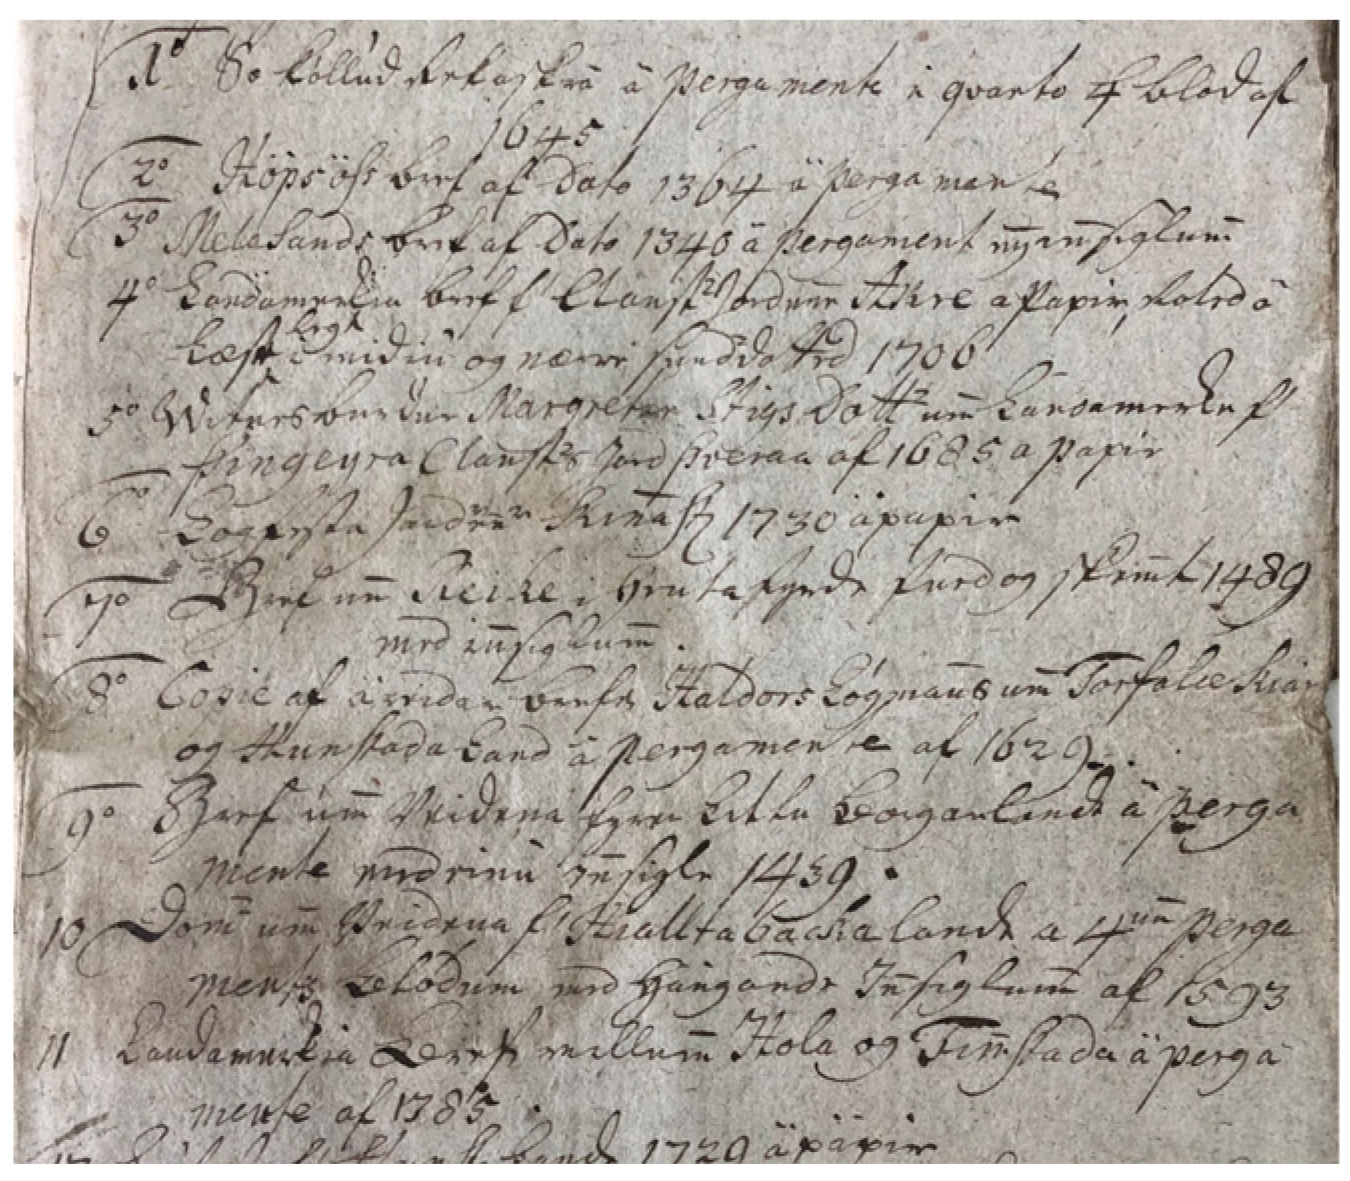 1° So kóllud Rekaskrá á pergamente i qvarto 4 blod af
1645
2° Höps öss bref af Dato 1364 á pergamente
3° Melasands bref af Dato 1340 á pergament innsiglum
4° Landamerkia bref f Claust Jordunn Akre a Papir,
og nærri 1706
5° Vitnesburdur Margretar Stigs Dottr um Landamerke f
Þingeyra Claustrs Jord af 1685 a papir
6° Lögfesta 1730 á papir
7° Bref um Reike i Hrutafyrde 1489
med innsiglum.
8° Copie af brefe Haldors Lögmans um Torfalæk
og Hunstada Land á pergamente af 1629.
9° Bref um Veidena fyrer Litlu Borgarlande á perga
mente med einu innsigle 1439.
10 Dom um Veidena f Hialltabacka lande a 4um perga
ments Blödum med Hangande Innsiglum af 1593
11 Landamerkia Bref millum Hola og Finnstada á perga
mente af 1785.
lande 1729 á papir